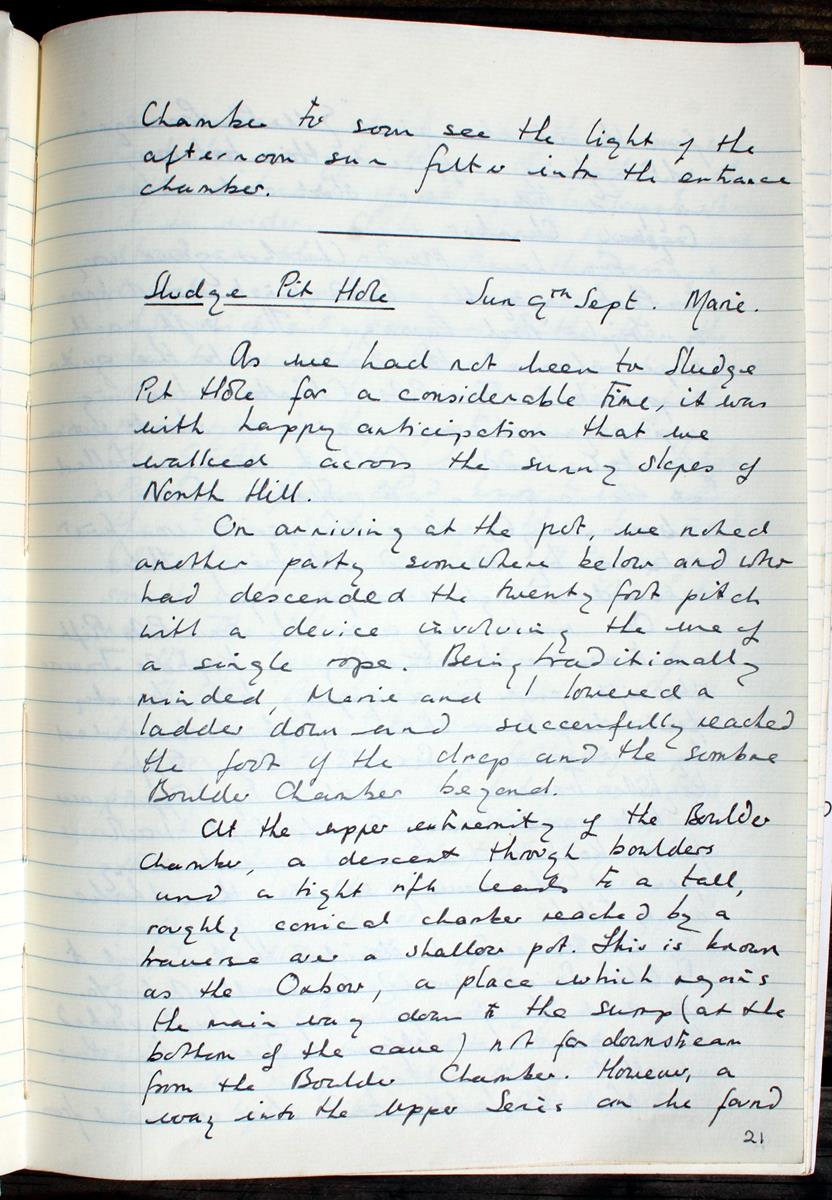 Chamber to soon see the light of the
afternoon sun filter into the entrance
chamber.
Sludge Pit Hole Sun 9th Sept. Marie.
As we had not been to Sludge
Pit Hole for a considerable time, it was
with happy anticipation that we
walked across the sunny slopes of
North Hill.
On arriving at the pot, we noted
another party somewhere below and who
had descended the twenty foot pitch
with a device involving the use of
a single rope. Being traditionally
minded, Marie and I lowered a
ladder down and successfully reached
the foot of the drop and the sombre
Boulder Chamber beyond.
At the upper extremity of the Boulder
Chamber, a descent through boulders
and a tight rift leads to a tall,
roughly conical chamber reached by a
traverse over a shallow pot. This is known
as the Oxbow, a place which regains
the main way down to the sump (at the
bottom of the cave) not far downstream
from the Boulder Chamber. However, a
way into the Upper Series can be found
21